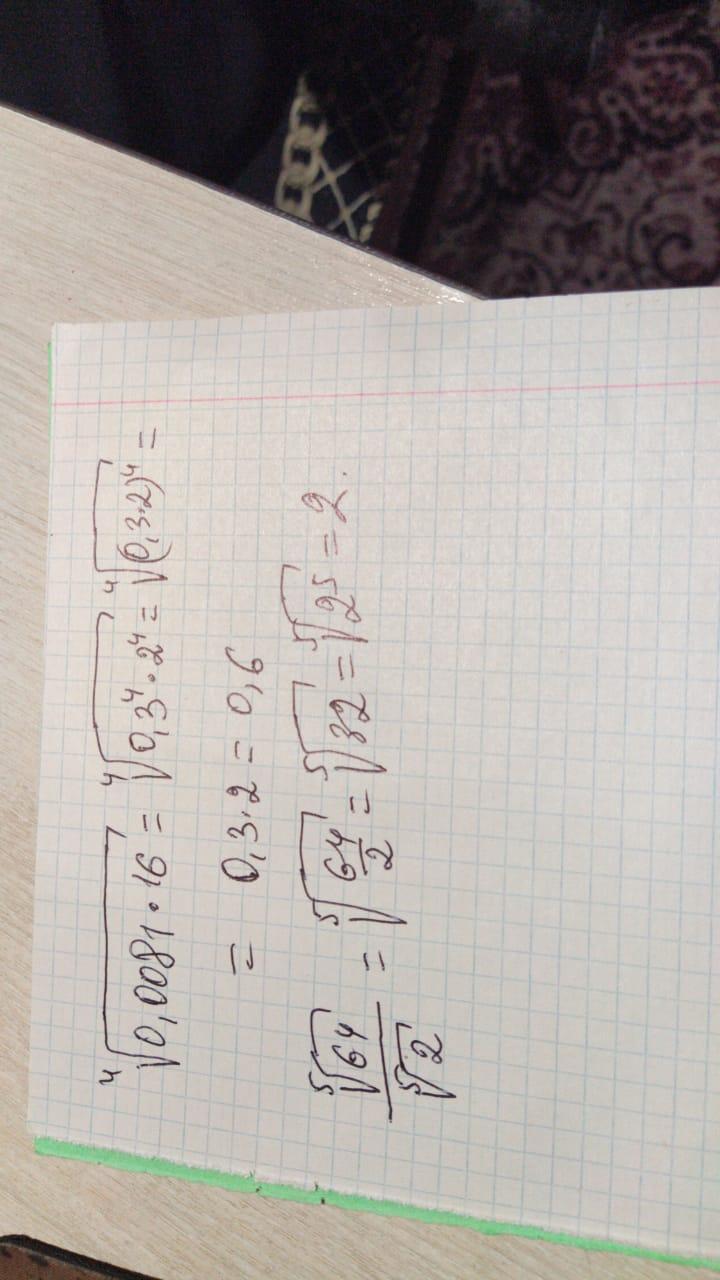 ⁴√0,0081·16 = ⁴√0,3⁴·2⁴ = ⁴√(0,3·2)⁴ =
= 0,3·2 = 0,6
⁵√64/⁵√2 = ⁵√(64/2) = ⁵√32 = ⁵√2⁵ = 2.